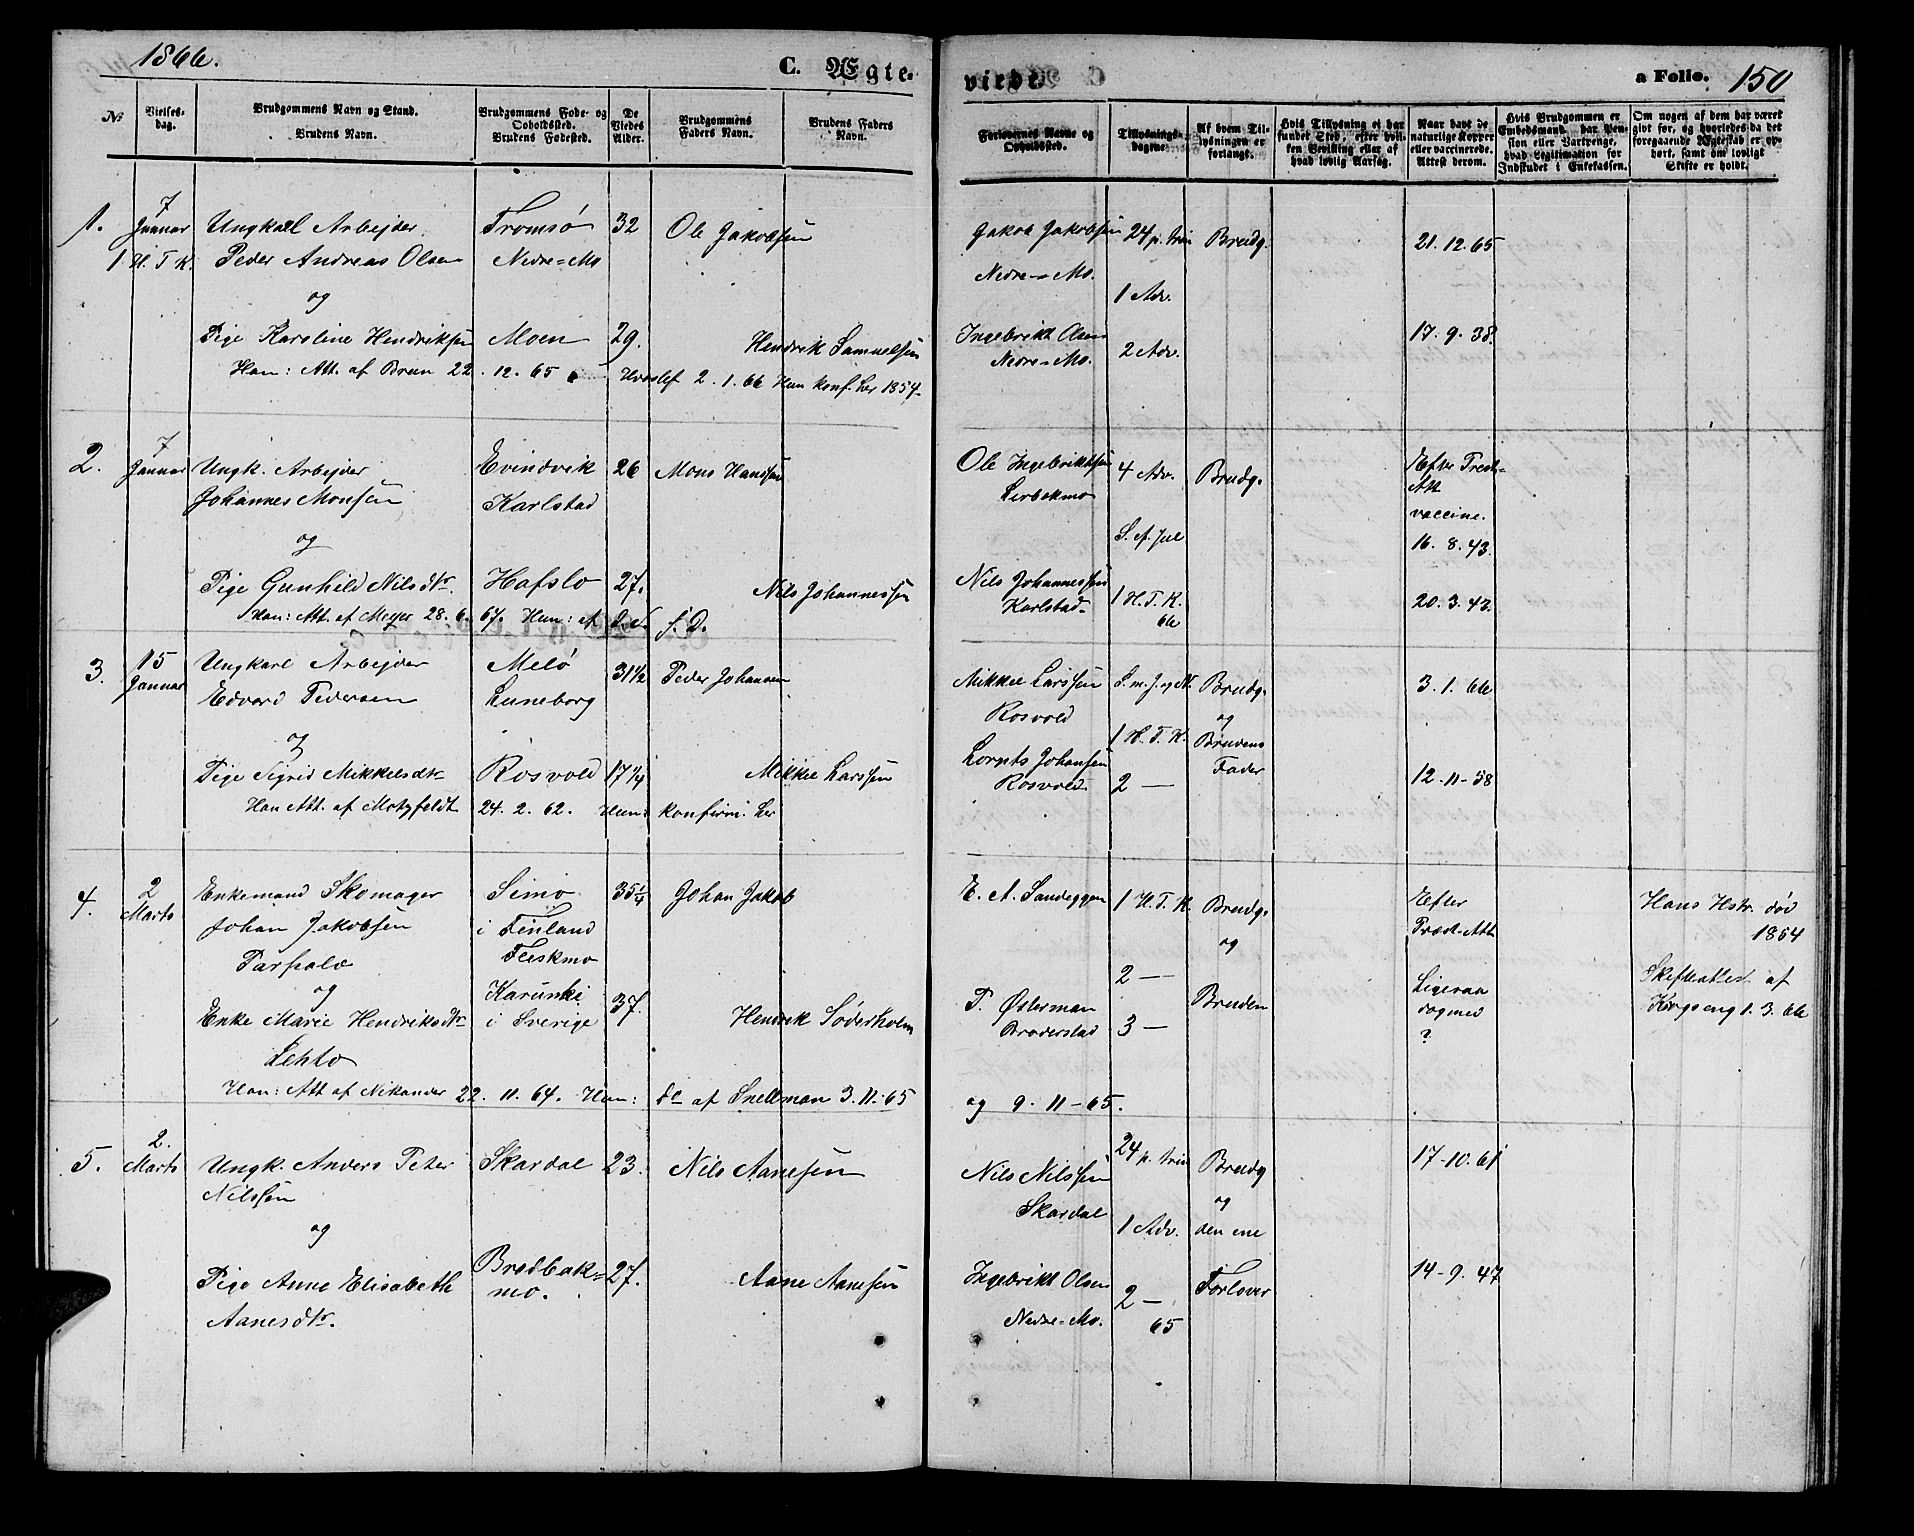 1866.
C. Ægte-
viede
a Folio. 150
No
Vielses-dag.
Brudgommens Navn og Stand.
Brudens Navn.
Brudgommens Føde- og Opholdssted.
Brudens Fødested.
De Viedes Alder.
Brudgommens Faders Navn.
Brudens Faders Navn.
Forlovernes Navne og Opholdssted.
Tillysnings-dagene.
Af hvem Tillysningen er forlangt.
Hvis Tillysning ei har fundet Sted, efter hvilken Bevilling eller af hvad lovlig Aarsag.
Naar havt de naturlige Kopper eller vaccinerede. Attest derom.
Hvis Brudgommen er Embedsmand, har Pension eller Vartpenge, hvad Legitimation for Indskudet i Enkekassen.
Om nogen af dem har været gift før, og hvorledes da det foregaaende Ægteskab er ophørt, samt om lovligt Skifte er holdt.
1. 7 Januar Ungkarl Arbejder Tromsø 32 Ole Jakobsen Jakob Jakobsen 24 p. trin Brudg. 21. 12. 65
1 H. T. K. Peder Andreas Olsen Nedre-Mo Nedre-Mo.
og 1 Adv.
Pige Karoline Hendriksen Moen 29. Hendrik Samuelsen Ingebrikt Olsen Nedre-Mo. 2 Adv. 17. 9. 38.
Han: Att. af Brun 22. 12. 65 Hvoslef 2. 1. 66 Hun konf. her 1854.
2. 7 Januar Ungk. Arbejder Evindvik 26 Mons Hanssen Ole Ingebriktsen 4 Adv. Brudg. Efter Præste-Att
Johannes Monsen Karlstad Lerbekmo vaccine.
og S. e. Jul 16. 8. 43.
Pige Gunhild Nilsdtr. Hafslo 27. Nils Johannessen Nils Johannessen Karlstad 1 H. T. K. 66 20. 3. 43.
Han: Att. af Meyer 28. 6. 67. Hun: af S. D.
3. 15 Januar Ungkarl Arbejder Melø 31 1/2 Peder Johansen Mikkel Larssen S. m. J. og N. Brudg. 3. 1. 66
Edvard Pedersen Luneborg Rosvold og
og 1 H. T. K. Brudens Fader
Pige Sigrid Mikkelsdtr Rosvold 17 1/4 Mikkel Larssen Lorents Johansen Rosvold 2 — 12-11-58
Han Att. af Motzfeldt 24. 2. 62. Hun: konfirm. her
4. 2 Marts Enkemand Skomager Simo 35 1/4 Johan Jakob E. A. Sandeggen 1 H. T. K. Brudg. Efter Præst-Att Hans Hstr. død 1864
Johan Jakobsen i Finland og
Parpala Feiskmo 2 — Skifteattest af
og Karunki Bruden Ligesaa Kongseng 1. 3. 66
Enke Marie Hendriksdtr i Sverige 37. Hendrik Söderholm P. Østerman 3 — dogmed
Lehto Braderstad ?
Han: Att af Nikander 22. 11. 64. Hun: do af Snellman 3. 11-65 og 9. 11-65.
5. 2. Marts Ungk. Anders Peter Skardal 23. Nils Aanesen Nils Nilssen 24 p. trin Brudg 17-10. 61
Nilssen Skardal og
og 1 Adv. den ene
Pige Anne Elisabeth Bredbak-mo. 27. Aane Aanesen Ingebrikt Olsen 2 — Forlover 14-9. 47
Aanesdtr. Nedre-Mo. 65